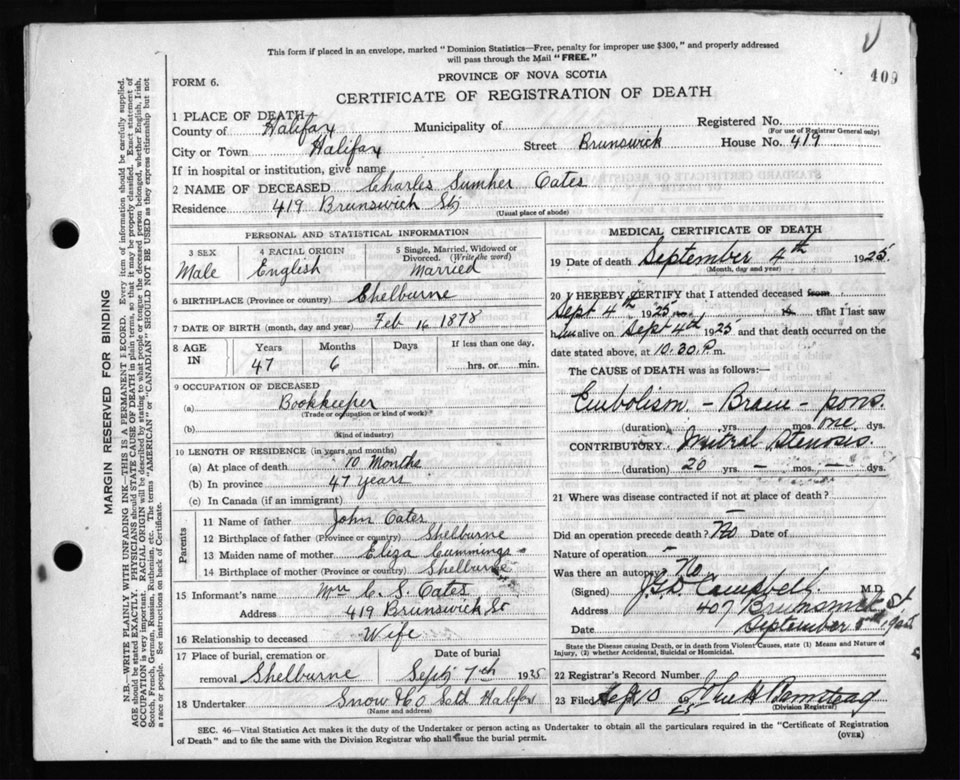 This form if placed in an envelope, marked "Dominion Statistics—Free, penalty for improper use $300," and properly addressed
will pass through the Mail "FREE."
409
PROVINCE OF NOVA SCOTIA
FORM 6.
CERTIFICATE OF REGISTRATION OF DEATH
1 PLACE OF DEATH
County of Halifax Municipality of Registered No.
(For use of Registrar General only)
City or Town Halifax Street Brunswick House No. 419
If in hospital or institution, give name
2 NAME OF DECEASED Charles Sumner Oates
Residence 419 Brunswick St
(Usual place of abode)
PERSONAL AND STATISTICAL INFORMATION
3 SEX 4 RACIAL ORIGIN 5 Single, Married, Widowed or
Divorced. (Write the word)
Male English Married
6 BIRTHPLACE (Province or country) Shelburne
7 DATE OF BIRTH (month, day and year) Feb 16 1878
8 AGE IN Years Months Days If less than one day,
47 6 hrs. or min.
9 OCCUPATION OF DECEASED
(a) Bookkeeper
(Trade or occupation or kind of work)
(b)
(Kind of industry)
10 LENGTH OF RESIDENCE (in years and months)
(a) At place of death 10 Months
(b) In province 47 years
(c) In Canada (if an immigrant)
Parents
11 Name of father John Oates
12 Birthplace of father (Province or country) Shelburne
13 Maiden name of mother Eliza Cummings
14 Birthplace of mother (Province or country) Shelburne
15 Informant's name Mrs C. S. Oates
Address 419 Brunswick St
16 Relationship to deceased Wife
17 Place of burial, cremation or Date of burial
removal Shelburne Sept 7th 1925
18 Undertaker Snow & Co Ltd Halifax
(Name and address)
MEDICAL CERTIFICATE OF DEATH
19 Date of death September 4th 1925.
(Month, day and year)
20 I HEREBY CERTIFY that I attended deceased from
Sept 4th 1925 that I last saw
him alive on Sept 4th 1925 and that death occurred on the
date stated above, at 10.30 P.m.
The CAUSE of DEATH was as follows:—
Embolism - Brain - pons
(duration) yrs. mos. one dys.
CONTRIBUTORY Mitral Stenosis.
(duration) 20 yrs. - mos. - dys.
21 Where was disease contracted if not at place of death?
Did an operation precede death? No Date of
Nature of operation -
Was there an autopsy No
(Signed) Campbell M.D.
Address 407 Brunswick St
Date September 5th 1925
State the Disease causing Death, or in death from Violent Causes, state (1) Means and Nature of
Injury, (2) whether Accidental, Suicidal or Homicidal.
22 Registrar's Record Number
23 Filed Sept 10 John H
(Division Registrar)
SEC. 46—Vital Statistics Act makes it the duty of the Undertaker or person acting as Undertaker to obtain all the particulars required in the "Certificate of Registration
of Death" and to file the same with the Division Registrar who shall issue the burial permit. (OVER)
MARGIN RESERVED FOR BINDING
N.B.—WRITE PLAINLY WITH UNFADING INK—THIS IS A PERMANENT RECORD. Every item of information should be carefully supplied.
AGE should be stated EXACTLY. PHYSICIANS should STATE CAUSE OF DEATH in plain terms, so that it may be properly classified. Exact statement of
OCCUPATION is very important. RACIAL ORIGIN will be described by stating to what people or tongue the deceased person belonged, whether English, Irish,
Scotch, French, German, Russian, Ruthenian, etc. The terms "AMERICAN" or "CANADIAN" SHOULD NOT BE USED as they express citizenship but not
a race or people. See instructions on back of Certificate.